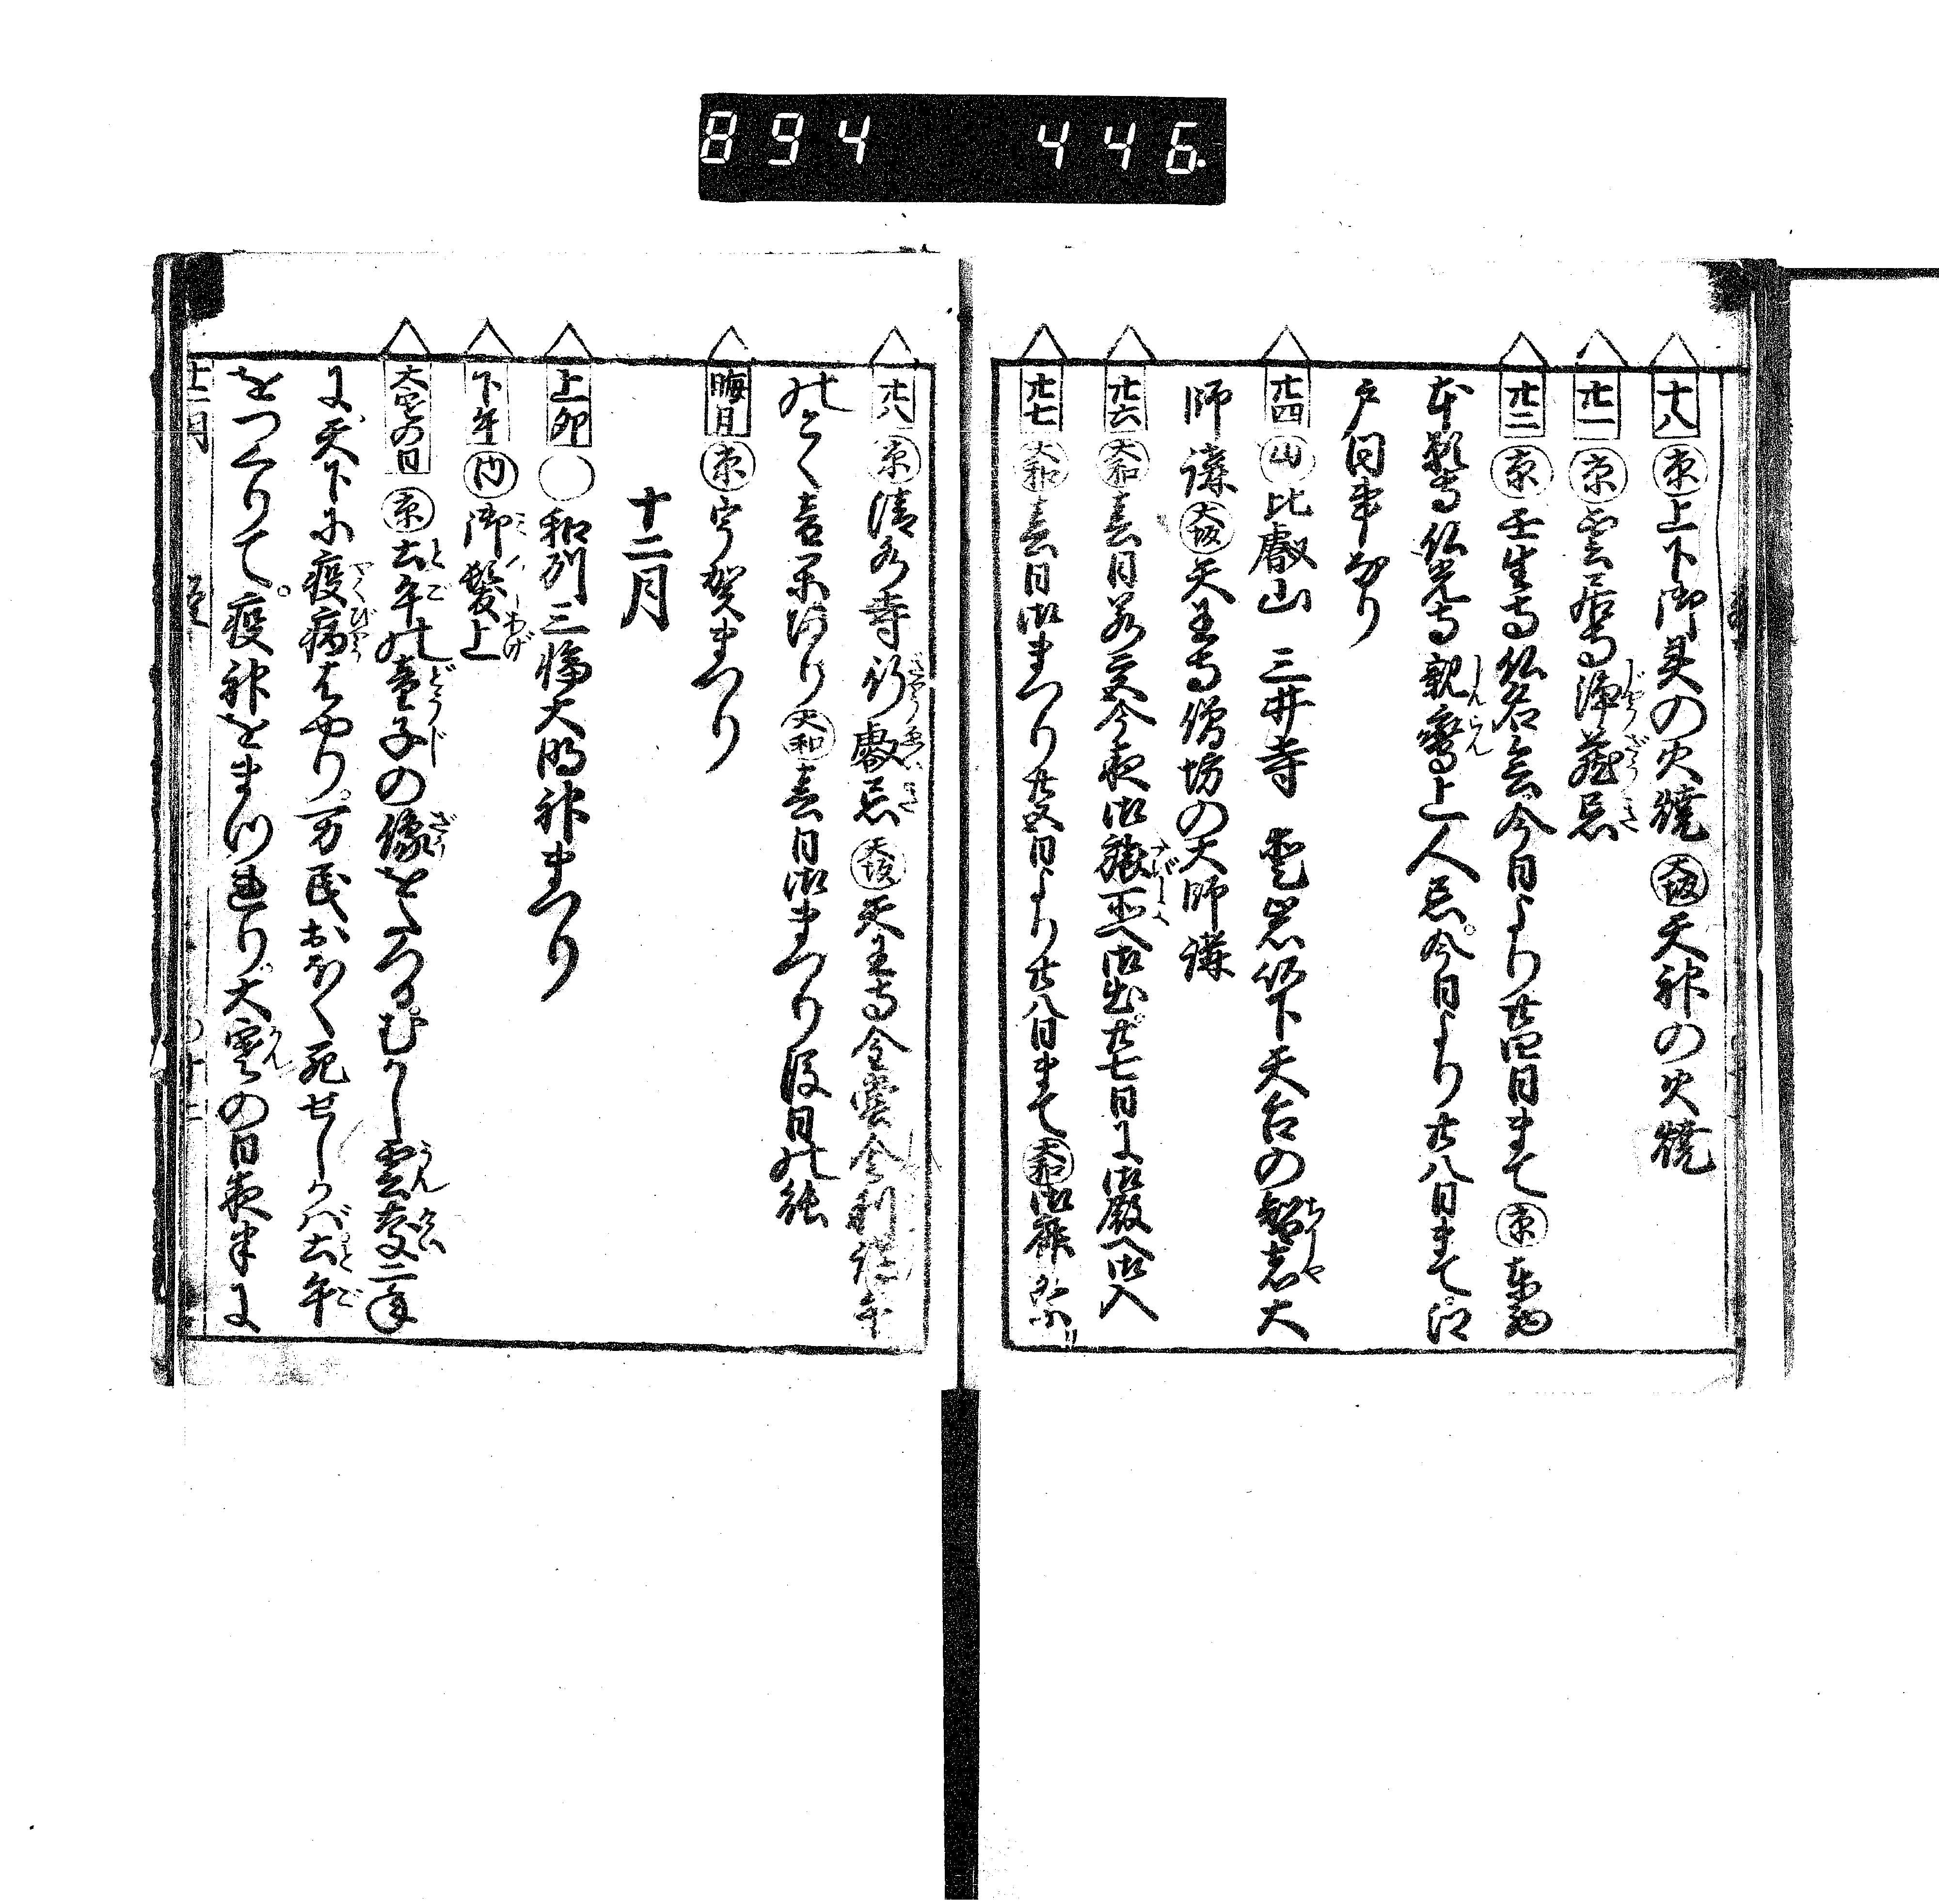 894 446.
十八 京 上下御霊の火焼 大坂 天神の火焼
廿一 京 雲居寺浄蔵忌
廿二 京 壬生寺仏名会今日より廿四日まて 京 東西
本願寺仏光寺親鸞上人忌。今日より廿八日まて。江
戸同事なり
廿四 山 比叡山 三井寺 霊岩仍下天台の智者大
師講 大坂 天王寺僧坊の大師講
廿六 大和 春日若宮今夜御旅所へ御出。廿七日に御殿へ御入
廿七 大和 春日御まつり廿六日より廿八日まて 大和 御祭
廿八 京 清水寺行叡忌 大坂 天王寺金堂舎利講年
のことく音楽有り 大和 春日御まつり後日の能
晦日 京 宇賀まつり
十二月
上卯 和州三輪大明神まつり
下午 内 御髪上
大寒の日 京 土牛の童子の像をたつる。むかし雲慶二年
に。天下に疫病はやり。万民おほく死せしかバ土牛
をつくりて。疫神をまつれり。大寒の日夜半に
十二月